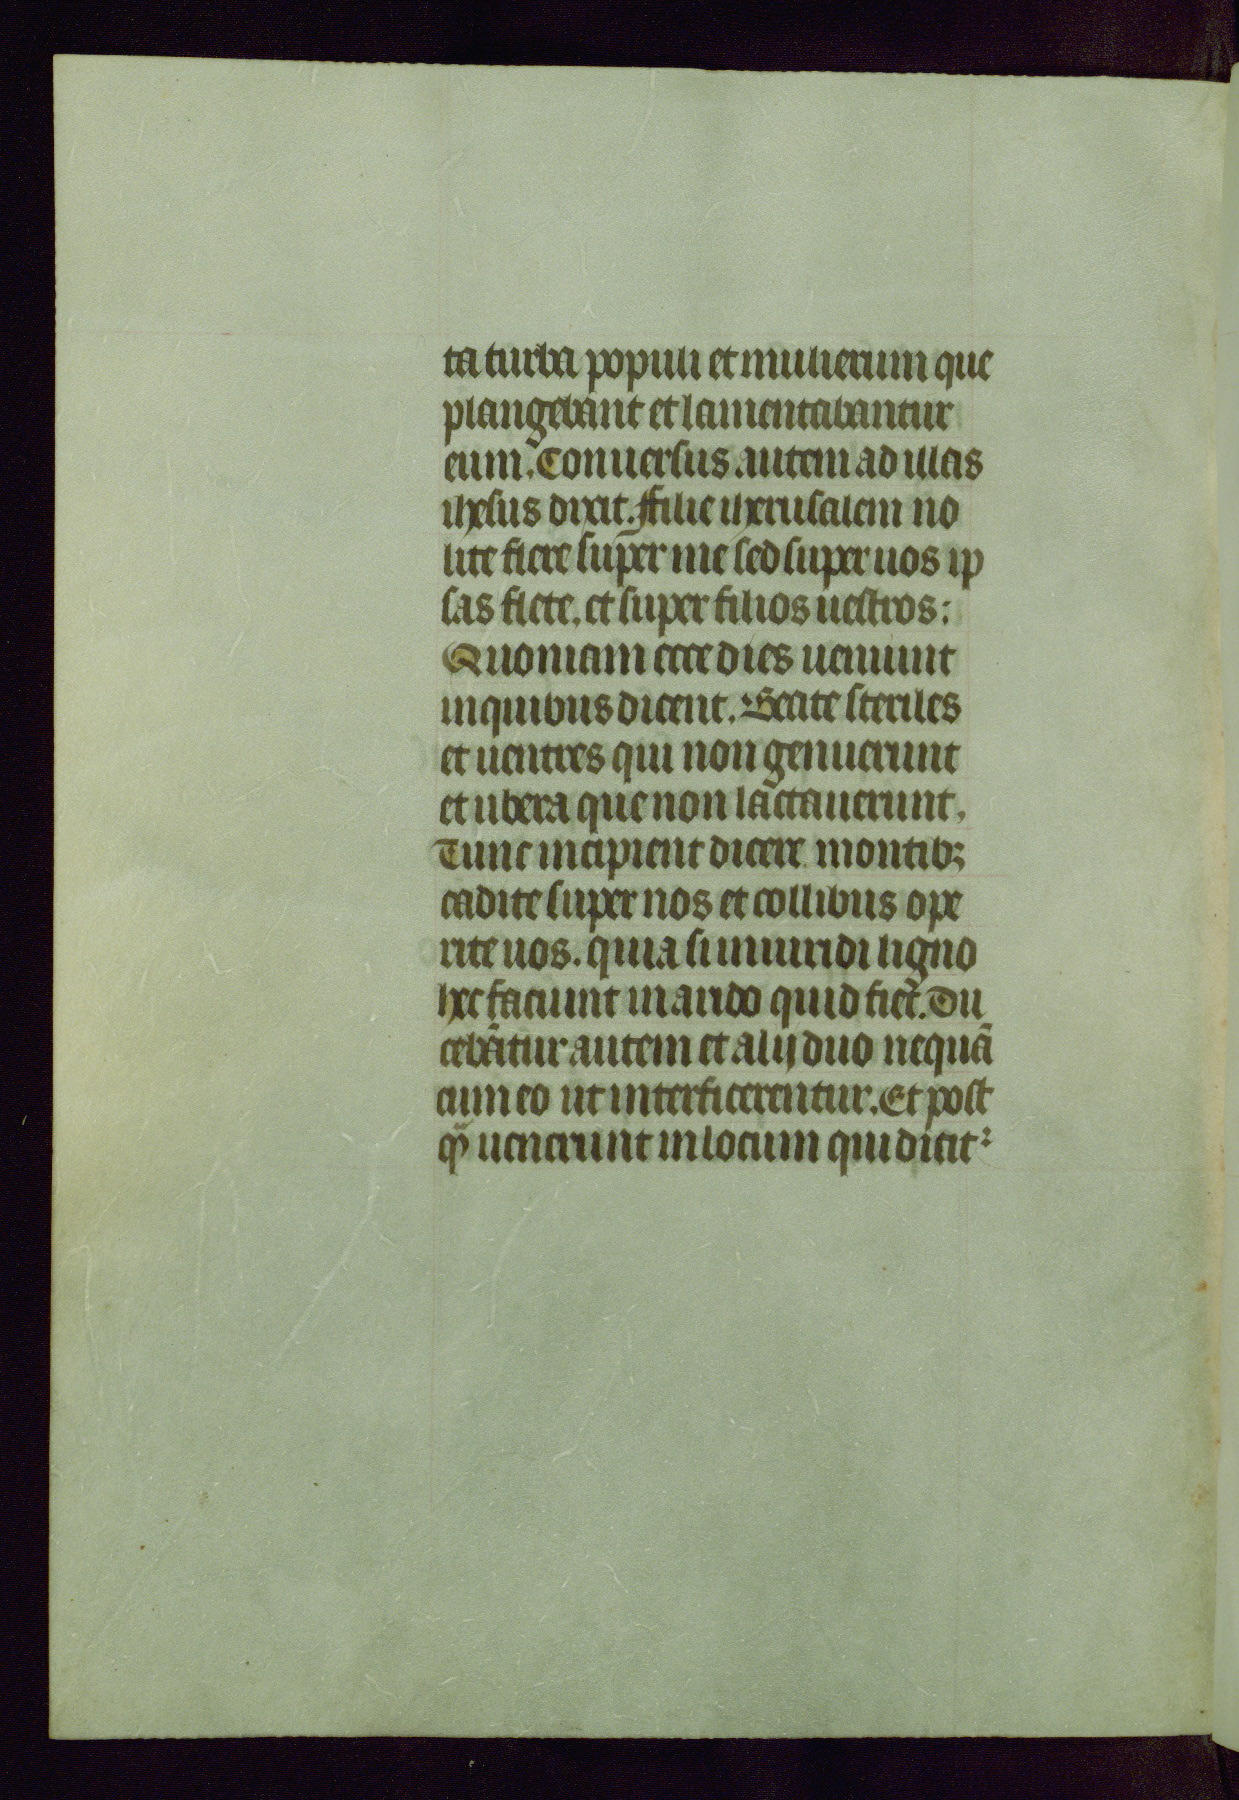 ta turba populi et mulierum que
plangebant et lamentabantur
eum. Conuersus autem ad illas
ihesus dixit. Filie iherusalem no
lite flere super me sed super uos ip
sas flete. et super filios uestros:
Quoniam ecce dies uenient
in quibus dicent. Beate steriles
et uentres qui non genuerunt
et ubera que non lactauerunt.
Tunc incipient dicere montibꝫ
cadite super nos et collibus ope
rite uos. quia si in uiridi ligno
hec faciunt in arido quid fiet. Du
cebātur autem et alij duo nequā
cum eo ut interficerentur. Et post
qͫ uenerunt in locum qui dicit᷑